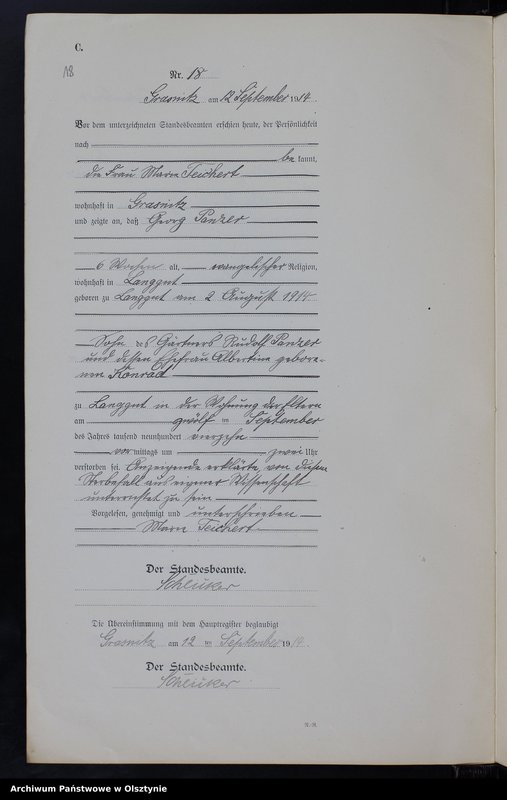 C.
18
Nr. 18
Grasnitz am 12 September 1914.
Vor dem unterzeichneten Standesbeamten erschien heute, der Persönlichkeit
nach
be kannt,
die Frau Marie Teichert
wohnhaft in Grasnitz
und zeigte an, daß Georg Panzer
6 Wochen alt, evangelischer Religion,
wohnhaft in Langgut
geboren zu Langgut am 2 August 1914
Sohn des Gärtners Rudolf Panzer
und dessen Ehefrau Albertine gebore-
nen Konrad
zu Langgut in der Wohnung der Eltern
am zwölf ten September
des Jahres tausend neunhundert vierzehn
vor mittags um zwei Uhr
verstorben sei. Anzeigende erklärte, von diesem
Sterbefall aus eigener Wissenschaft
unterrichtet zu sein
Vorgelesen, genehmigt und unterschrieben
Marie Teichert
Der Standesbeamte.
Die Übereinstimmung mit dem Hauptregister beglaubigt
Grasnitz am 12 ten September 1914.
Der Standesbeamte.
Archiwum Państwowe w Olsztynie